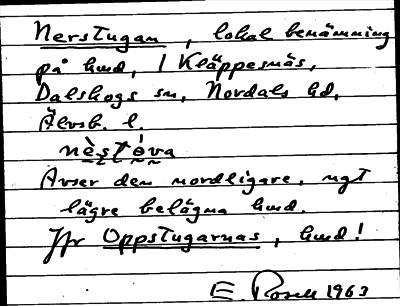 Nerstugan, lokal benämning
på hmd, 1 Kläppesnäs,
Dalskogs sn, Nordals hd,
Älvsb. l.
nèstó̰va̰
Avser den nordligare, ngt
lägre belägna hmd.
Jfr Oppstugarnas, hmd!
E. Rosell 1963